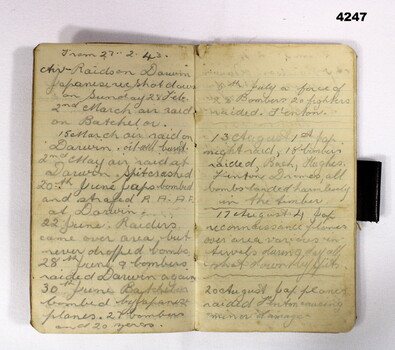 4247
From 27-2-43.
Air-Raids on Darwin
Japanese rec shot down
on Sunday 28 Feb.
2nd March air raid
on Batchelor.
15 March air raid on
Darwin. oil all burnt.
2nd May air raid at
Darwin. Spits crashed
20th June Japs bombed
and strafed R.A.A.F.
at Darwin
22 June. Raiders
came over area, but
never dropped bombs
28th June 9 bombers
raided Darwin again
30th June Batchelor
bombed by Japanese
planes. 27 bombers
and 20 zeros.
6th July a force of
Bombers 20 fighters
raided. Fenton.
13 August 1st Jap
night raid, 18 bombers
raided, Bach, Hughes.
Fenton Drinas, all
bombs landed harmlessly
in the timber.
17 August 4 Jap
reconnaissance planes
over area various in
tervals during day all
shot down by Spits
20 August Jap planes
raided Fenton causing
minor damage